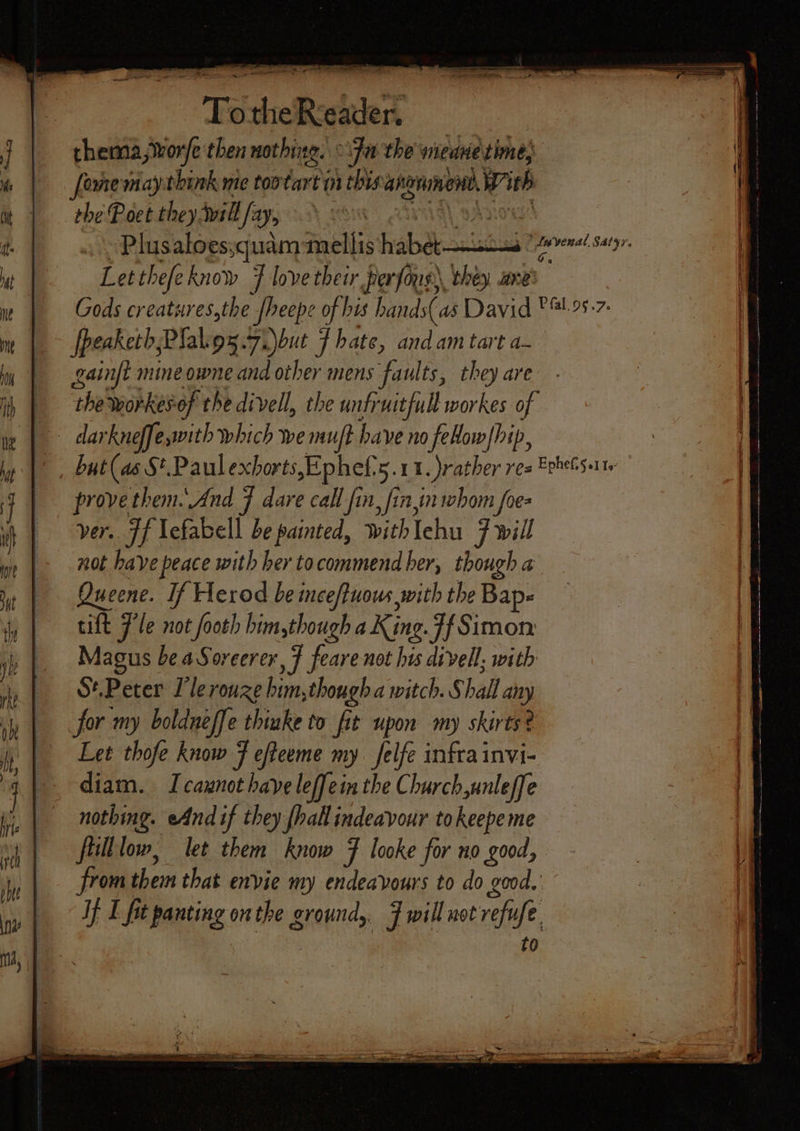 To the Reader.
thema, worſe then nothing. In the meane time,
ſome may think me too tart in this argument. With
the Poet they will ſay,
Plus aloes, quàm mellis habet——— Juvenal. Satyr. 6.
Let theſe know I love their perſons, they are
Gods creatures, the ſheepe of his hands (as David Pſal.95.7.
ſpeaketh, Pſal.95.7.) but I hate, and am tart a-
gainſt mine owne and other mens faults, they are
the workes of the divell, the unfruitfull workes of
darkneſſe, with which we muſt have no fellowſhip,
but (as St. Paul exhorts, Epheſ.5.11.) rather re- Epheſ.5.11.
prove them. And I dare call ſin, ſin, in whom ſoe-
ver. If Ieſabell be painted, with Iehu I will
not have peace with her to commend her, though a
Queene. If Herod be inceſtuous, with the Bap-
tiſt I'le not ſooth him, though a King. If Simon
Magus be a Sorcerer, I feare not his divell, with
St. Peter I'le rouze him, though a witch. Shall any
for my boldneſſe thinke to ſit upon my skirts?
Let thoſe know I eſteeme my ſelfe infra invi-
diam. I cannot have leſſe in the Church, unleſſe
nothing. And if they ſhall indeavour to keepe me
ſtill low, let them know I looke for no good,
from them that envie my endeavours to do good.
If I ſit panting on the ground, I will not refuſe
to